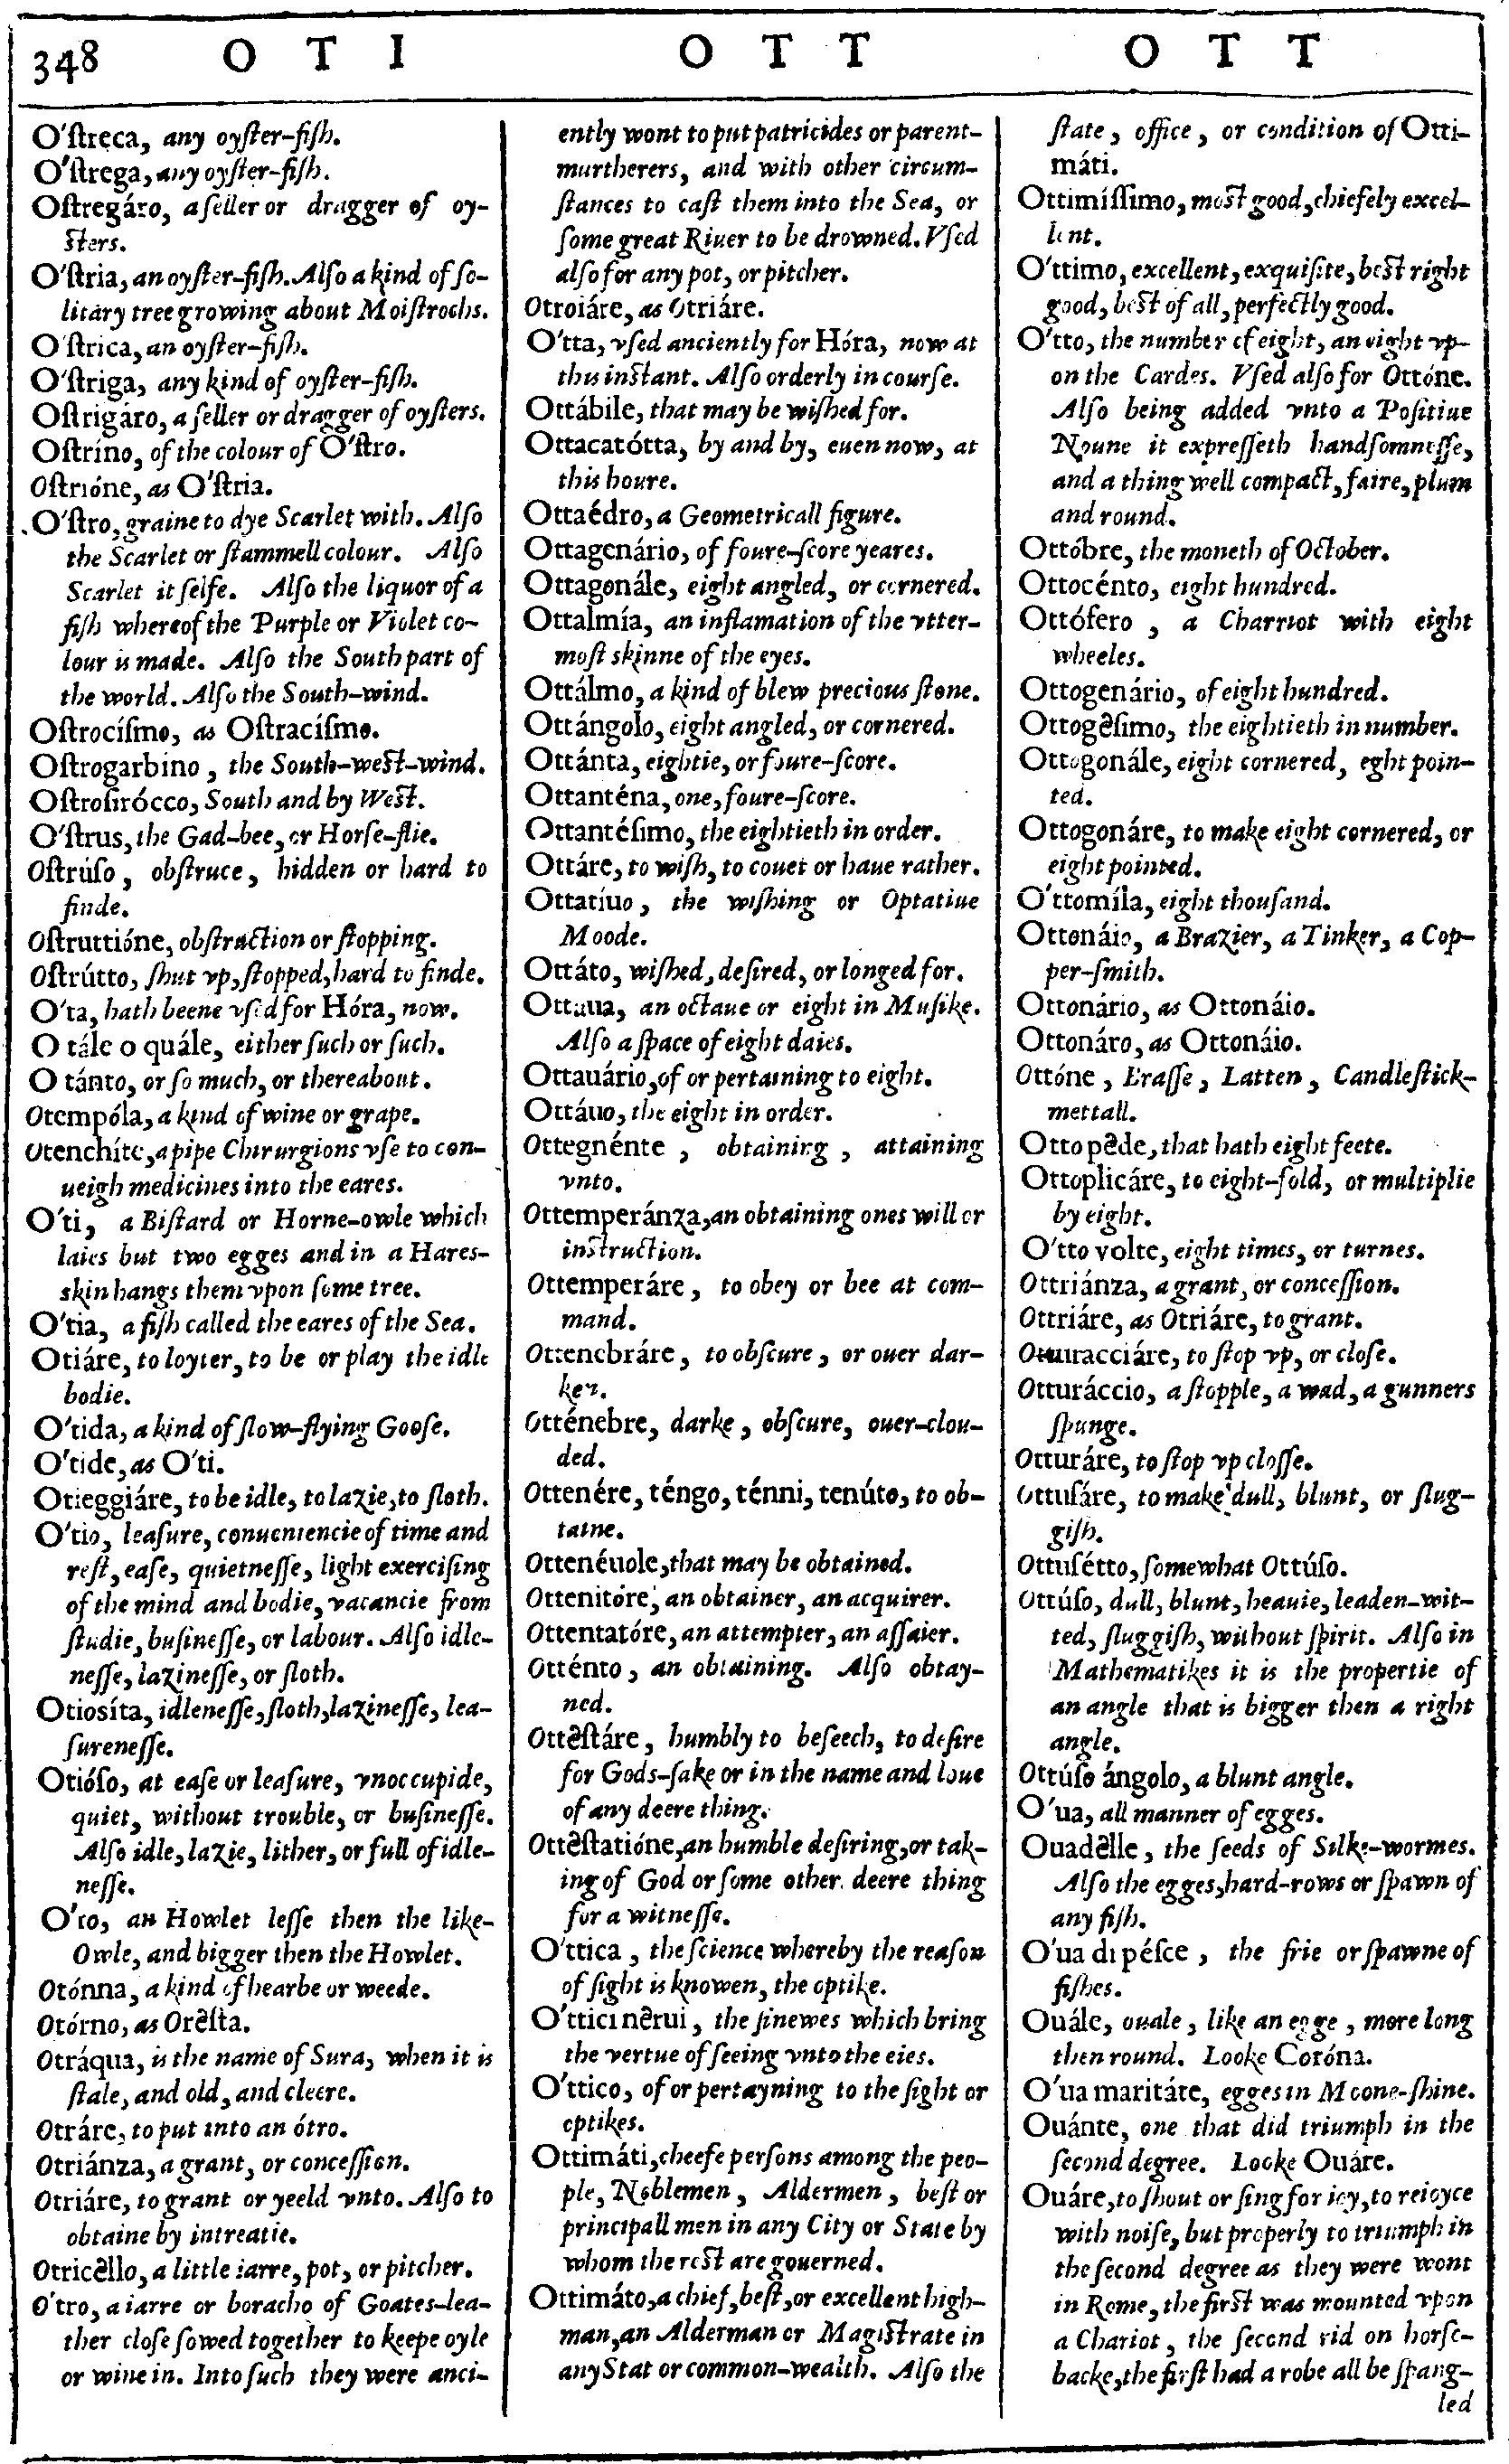 348 O T I O T T O T T
O'ſtręca, any oyſter-fiſh.
O'ſtrega, any oyſter-fiſh.
Oſtregáro, a ſeller or dragger of oy-
ſters.
O'ſtria, an oyſter-fiſh. Alſo a kind of ſo-
litary tree growing about Moiſtrochs.
O'ſtrica, an oyſter-fiſh.
O'ſtriga, any kind of oyſter-fiſh.
Oſtrigáro, a ſeller or dragger of oyſters.
Oſtríno, of the colour of O'ſtro.
Oſtrióne, as O'ſtria.
O'ſtro, graine to dye Scarlet with. Alſo
the Scarlet or ſtammell colour. Alſo
Scarlet it ſelfe. Alſo the liquor of a
fiſh whereof the Purple or Violet co-
lour is made. Alſo the South part of
the world. Alſo the South-wind.
Oſtrocíſmo, as Oſtracíſmo.
Oſtrogarbino, the South-weſt-wind.
Oſtroſirócco, South and by Weſt.
O'ſtrus, the Gad-bee, or Horſe-flie.
Oſtrúſo, obſtruce, hidden or hard to
finde.
Oſtruttióne, obſtruction or ſtopping.
Oſtrútto, ſhut vp, ſtopped, hard to finde.
O'ta, hath beene vſed for Hóra, now.
O tále o quále, either ſuch or ſuch.
O tánto, or ſo much, or thereabout.
Otempóla, a kind of wine or grape.
Otenchíte, a pipe Chirurgions vſe to con-
ueigh medicines into the eares.
O'ti, a Biſtard or Horne-owle which
laies but two egges and in a Hares-
skin hangs them vpon ſome tree.
O'tia, a fiſh called the eares of the Sea.
Otiáre, to loyter, to be or play the idle
bodie.
O'tida, a kind of ſlow-flying Gooſe.
O'tide, as O'ti.
Otieggiáre, to be idle, to lazie, to ſloth.
O'tio, leaſure, conueniencie of time and
reſt, eaſe, quietneſſe, light exerciſing
of the mind and bodie, vacancie from
ſtudie, buſineſſe, or labour. Alſo idle-
neſſe, lazineſſe, or ſloth.
Otiosíta, idleneſſe, ſloth, lazineſſe, lea-
ſureneſſe.
Otióſo, at eaſe or leaſure, vnoccupide,
quiet, without trouble, or buſineſſe.
Alſo idle, lazie, lither, or full of idle-
neſſe.
O'to, an Howlet leſſe then the like-
Owle, and bigger then the Howlet.
Otónna, a kind of hearbe or weede.
Otórno, as Orêſta.
Otráqua, is the name of Sura, when it is
ſtale, and old, and cleere.
Otráre, to put into an ótro.
Otriánza, a grant, or conceſſion.
Otriáre, to grant or yeeld vnto. Alſo to
obtaine by intreatie.
Otricêllo, a little iarre, pot, or pitcher.
O'tro, a iarre or boracho of Goates-lea-
ther cloſe ſowed together to keepe oyle
or wine in. Into ſuch they were anci-
ently wont to put patricides or parent-
murtherers, and with other circum-
ſtances to caſt them into the Sea, or
ſome great Riuer to be drowned. Vſed
alſo for any pot, or pitcher.
Otroiáre, as Otriáre.
O'tta, vſed anciently for Hóra, now at
this inſtant. Alſo orderly in courſe.
Ottábile, that may be wiſhed for.
Ottacatótta, by and by, euen now, at
this houre.
Ottaédro, a Geometricall figure.
Ottagenário, of foure-ſcore yeares.
Ottagonále, eight angled, or cornered.
Ottalmía, an inflamation of the vtter-
moſt skinne of the eyes.
Ottálmo, a kind of blew precious ſtone.
Ottángolo, eight angled, or cornered.
Ottánta, eightie, or foure-ſcore.
Ottanténa, one, foure-ſcore.
Ottantéſimo, the eightieth in order.
Ottáre, to wiſh, to couet or haue rather.
Ottatíuo, the wiſhing or Optatiue
Moode.
Ottáto, wiſhed, deſired, or longed for.
Ottaua, an octaue or eight in Muſike.
Alſo a ſpace of eight daies.
Ottauário, of or pertaining to eight.
Ottáuo, the eight in order.
Ottegnénte, obtaining, attaining
vnto.
Ottemperánza, an obtaining ones will or
inſtruction.
Ottemperáre, to obey or bee at com-
mand.
Ottenebráre, to obſcure, or ouer dar-
ken.
Otténebre, darke, obſcure, ouer-clou-
ded.
Ottenére, téngo, ténni, tenúto, to ob-
taine.
Ottenéuole, that may be obtained.
Ottenitóre, an obtainer, an acquirer.
Ottentatóre, an attempter, an aſſaier.
Otténto, an obtaining. Alſo obtay-
ned.
Ottêſtáre, humbly to beſeech, to deſire
for Gods-ſake or in the name and loue
of any deere thing.
Ottêſtatióne, an humble deſiring, or tak-
ing of God or ſome other deere thing
for a witneſſe.
O'ttica, the ſcience whereby the reaſon
of ſight is knowen, the optike.
O'ttici nêrui, the ſinewes which bring
the vertue of ſeeing vnto the eies.
O'ttico, of or pertayning to the ſight or
optikes.
Ottimáti, cheefe perſons among the peo-
ple, Noblemen, Aldermen, beſt or
principall men in any City or State by
whom the reſt are gouerned.
Ottimáto, a chief, beſt, or excellent high-
man, an Alderman or Magiſtrate in
any Stat or common-wealth. Alſo the
ſtate, office, or condition of Otti-
máti.
Ottimíſſimo, moſt good, chiefely excel-
lent.
O'ttimo, excellent, exquiſite, beſt right
good, beſt of all, perfectly good.
O'tto, the number of eight, an eight vp-
on the Cardes. Vſed alſo for Ottóne.
Alſo being added vnto a Poſitiue
Noune it expreſſeth handſomneſſe,
and a thing well compact, faire, plum
and round.
Ottóbre, the moneth of October.
Ottocénto, eight hundred.
Ottófero, a Charriot with eight
wheeles.
Ottogenário, of eight hundred.
Ottogêſimo, the eightieth in number.
Ottogonále, eight cornered, eght poin-
ted.
Ottogonáre, to make eight cornered, or
eight pointed.
O'ttomíla, eight thouſand.
Ottonáio, a Brazier, a Tinker, a Cop-
per-ſmith.
Ottonário, as Ottonáio.
Ottonáro, as Ottonáio.
Ottóne, Braſſe, Latten, Candleſtick-
mettall.
Ottopêde, that hath eight feete.
Ottoplicáre, to eight-fold, or multiplie
by eight.
O'tto volte, eight times, or turnes.
Ottriánza, a grant, or conceſſion.
Ottriáre, as Otriáre, to grant.
Otturacciáre, to ſtop vp, or cloſe.
Otturáccio, a ſtopple, a wad, a gunners
ſpunge.
Otturáre, to ſtop vp cloſſe.
Ottuſáre, to make dull, blunt, or ſlug-
giſh.
Ottuſétto, ſomewhat Ottúſo.
Ottúſo, dull, blunt, heauie, leaden-wit-
ted, ſluggiſh, without ſpirit. Alſo in
Mathematikes it is the propertie of
an angle that is bigger then a right
angle.
Ottúſo ángolo, a blunt angle.
O'ua, all manner of egges.
Ouadêlle, the ſeeds of Silke-wormes.
Alſo the egges, hard-rows or ſpawn of
any fiſh.
O'ua di péſce, the frie or ſpawne of
fiſhes.
Ouále, ouale, like an egge, more long
then round. Looke Coróna.
O'ua maritáte, egges in Moone-ſhine.
Ouánte, one that did triumph in the
ſecond degree. Looke Ouáre.
Ouáre, to ſhout or ſing for ioy, to reioyce
with noiſe, but properly to triumph in
the ſecond degree as they were wont
in Rome, the firſt was mounted vpon
a Chariot, the ſecond rid on horſe-
backe, the firſt had a robe all be ſpang-
led